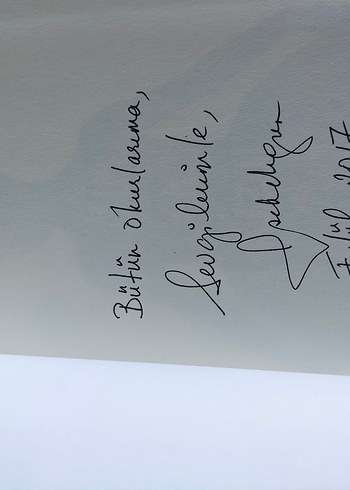 Bütün okurlarıma,
Sevgilerimle,
2017